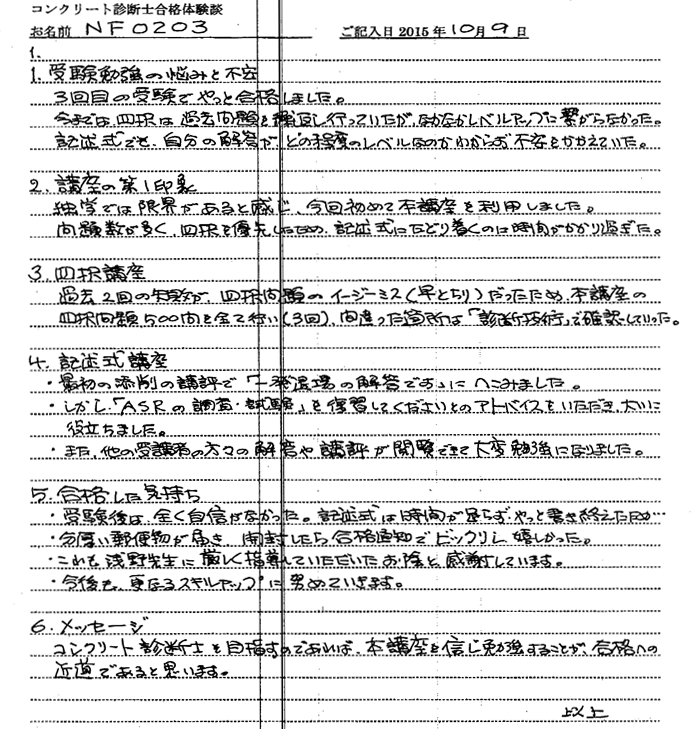 コンクリート診断士合格体験談
お名前 NF0203 ご記入日 2015 年 10月 9 日
1.
1. 受験勉強の悩みと不安
3回目の受験でやっと合格しました。
今までは、四択は過去問題を繰返し行っていたが、なかなかレベルアップに繋がらなかった。
記述式でも、自分の解答が、どの程度のレベルなのかわからず不安をかかえていた。
2. 講座の第1印象
独学では限界があると感じ、今回初めて本講座を利用しました。
問題数が多く、四択を優先したため、記述式にたどり着くのは時間がかかり過ぎた。
3. 四択講座
過去2回の失敗が、四択問題のイージーミス(早とちり)だったため、本講座の
四択問題500問を全て行い(3回)、間違った箇所は「診断技術」で確認していった。
4. 記述式講座
・最初の添削の講評で「一発退場の解答です」にへこみました。
・しかし、「ASRの調査・試験」を復習してくださいとのアドバイスをいただき、大いに
役立ちました。
・また、他の受講者の方々の解答や講評が閲覧できて大変勉強になりました。
5. 合格した気持ち
・受験後は、全く自信がなかった。記述式は時間が足らず、やっと書き終えたため…
・分厚い郵便物が届き、開封したら合格通知でビックリし嬉しかった。
・これも浅野先生に厳しく指導していただいたお陰と感謝しています。
・今後も、更なるスキルアップに努めていきます。
6. メッセージ
コンクリート診断士を目指すのであれば、本講座を信じ勉強することが、合格への
近道であると思います。
以上